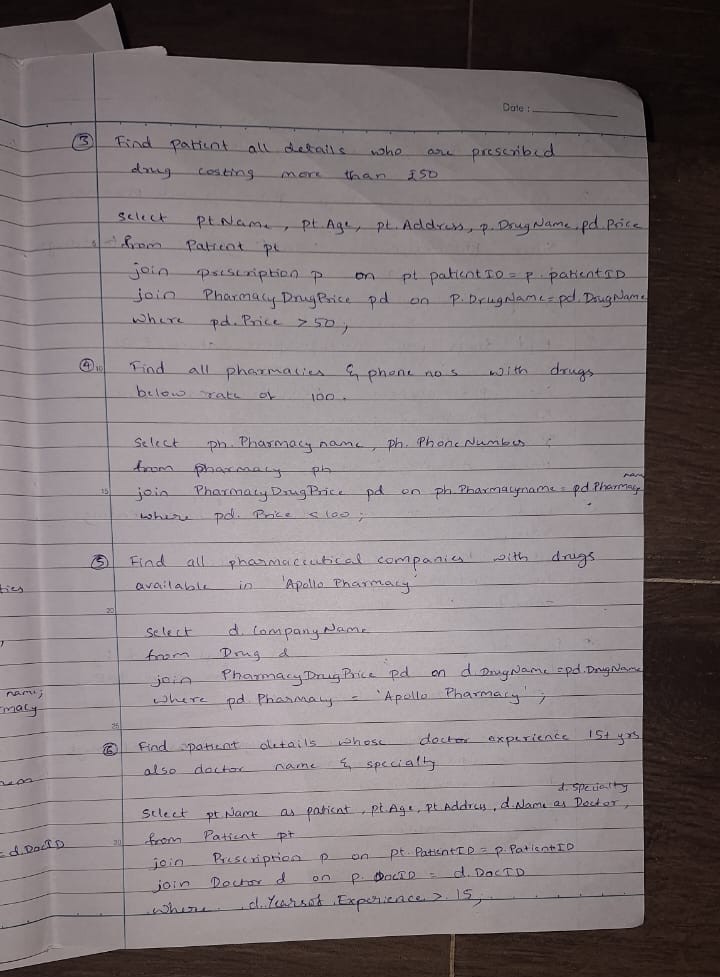 Date :
③ Find patient all details who are prescribed
drug costing more than £50
Select pt.Name, pt.Age, pt.Address, p.DrugName, pd.Price
5 from Patient pt
join prescription p on pt.patientID = p.patientID
join PharmacyDrugPrice pd on P.DrugName = pd.DrugName
where pd.Price > 50;
④ 10 Find all pharmacies & phone nos with drugs
below rate of 100.
Select ph.Pharmacyname, ph.PhoneNumber
from pharmacy ph
name
15 join PharmacyDrugPrice pd on ph.Pharmacyname = pd.Pharmacy
where pd.Price < 100;
⑤ Find all pharmaceutical companies with drugs
available in 'Apollo Pharmacy'
20
Select d.CompanyName
from Drug d
join PharmacyDrugPrice pd on d.DrugName = pd.DrugName
where pd.Pharmacy = 'Apollo Pharmacy';
25
⑥ Find patient details whose doctor experience 15+ yrs
also doctor name & specialty
d.Specialty
Select pt.Name as patient, pt.Age, pt.Address, d.Name as Doctor,
from Patient pt
join Prescription p on pt.PatientID = p.PatientID
join Doctor d on p.DocID = d.DocID
where d.YearsofExperience > 15;
ties
name;
macy
= d.DocID